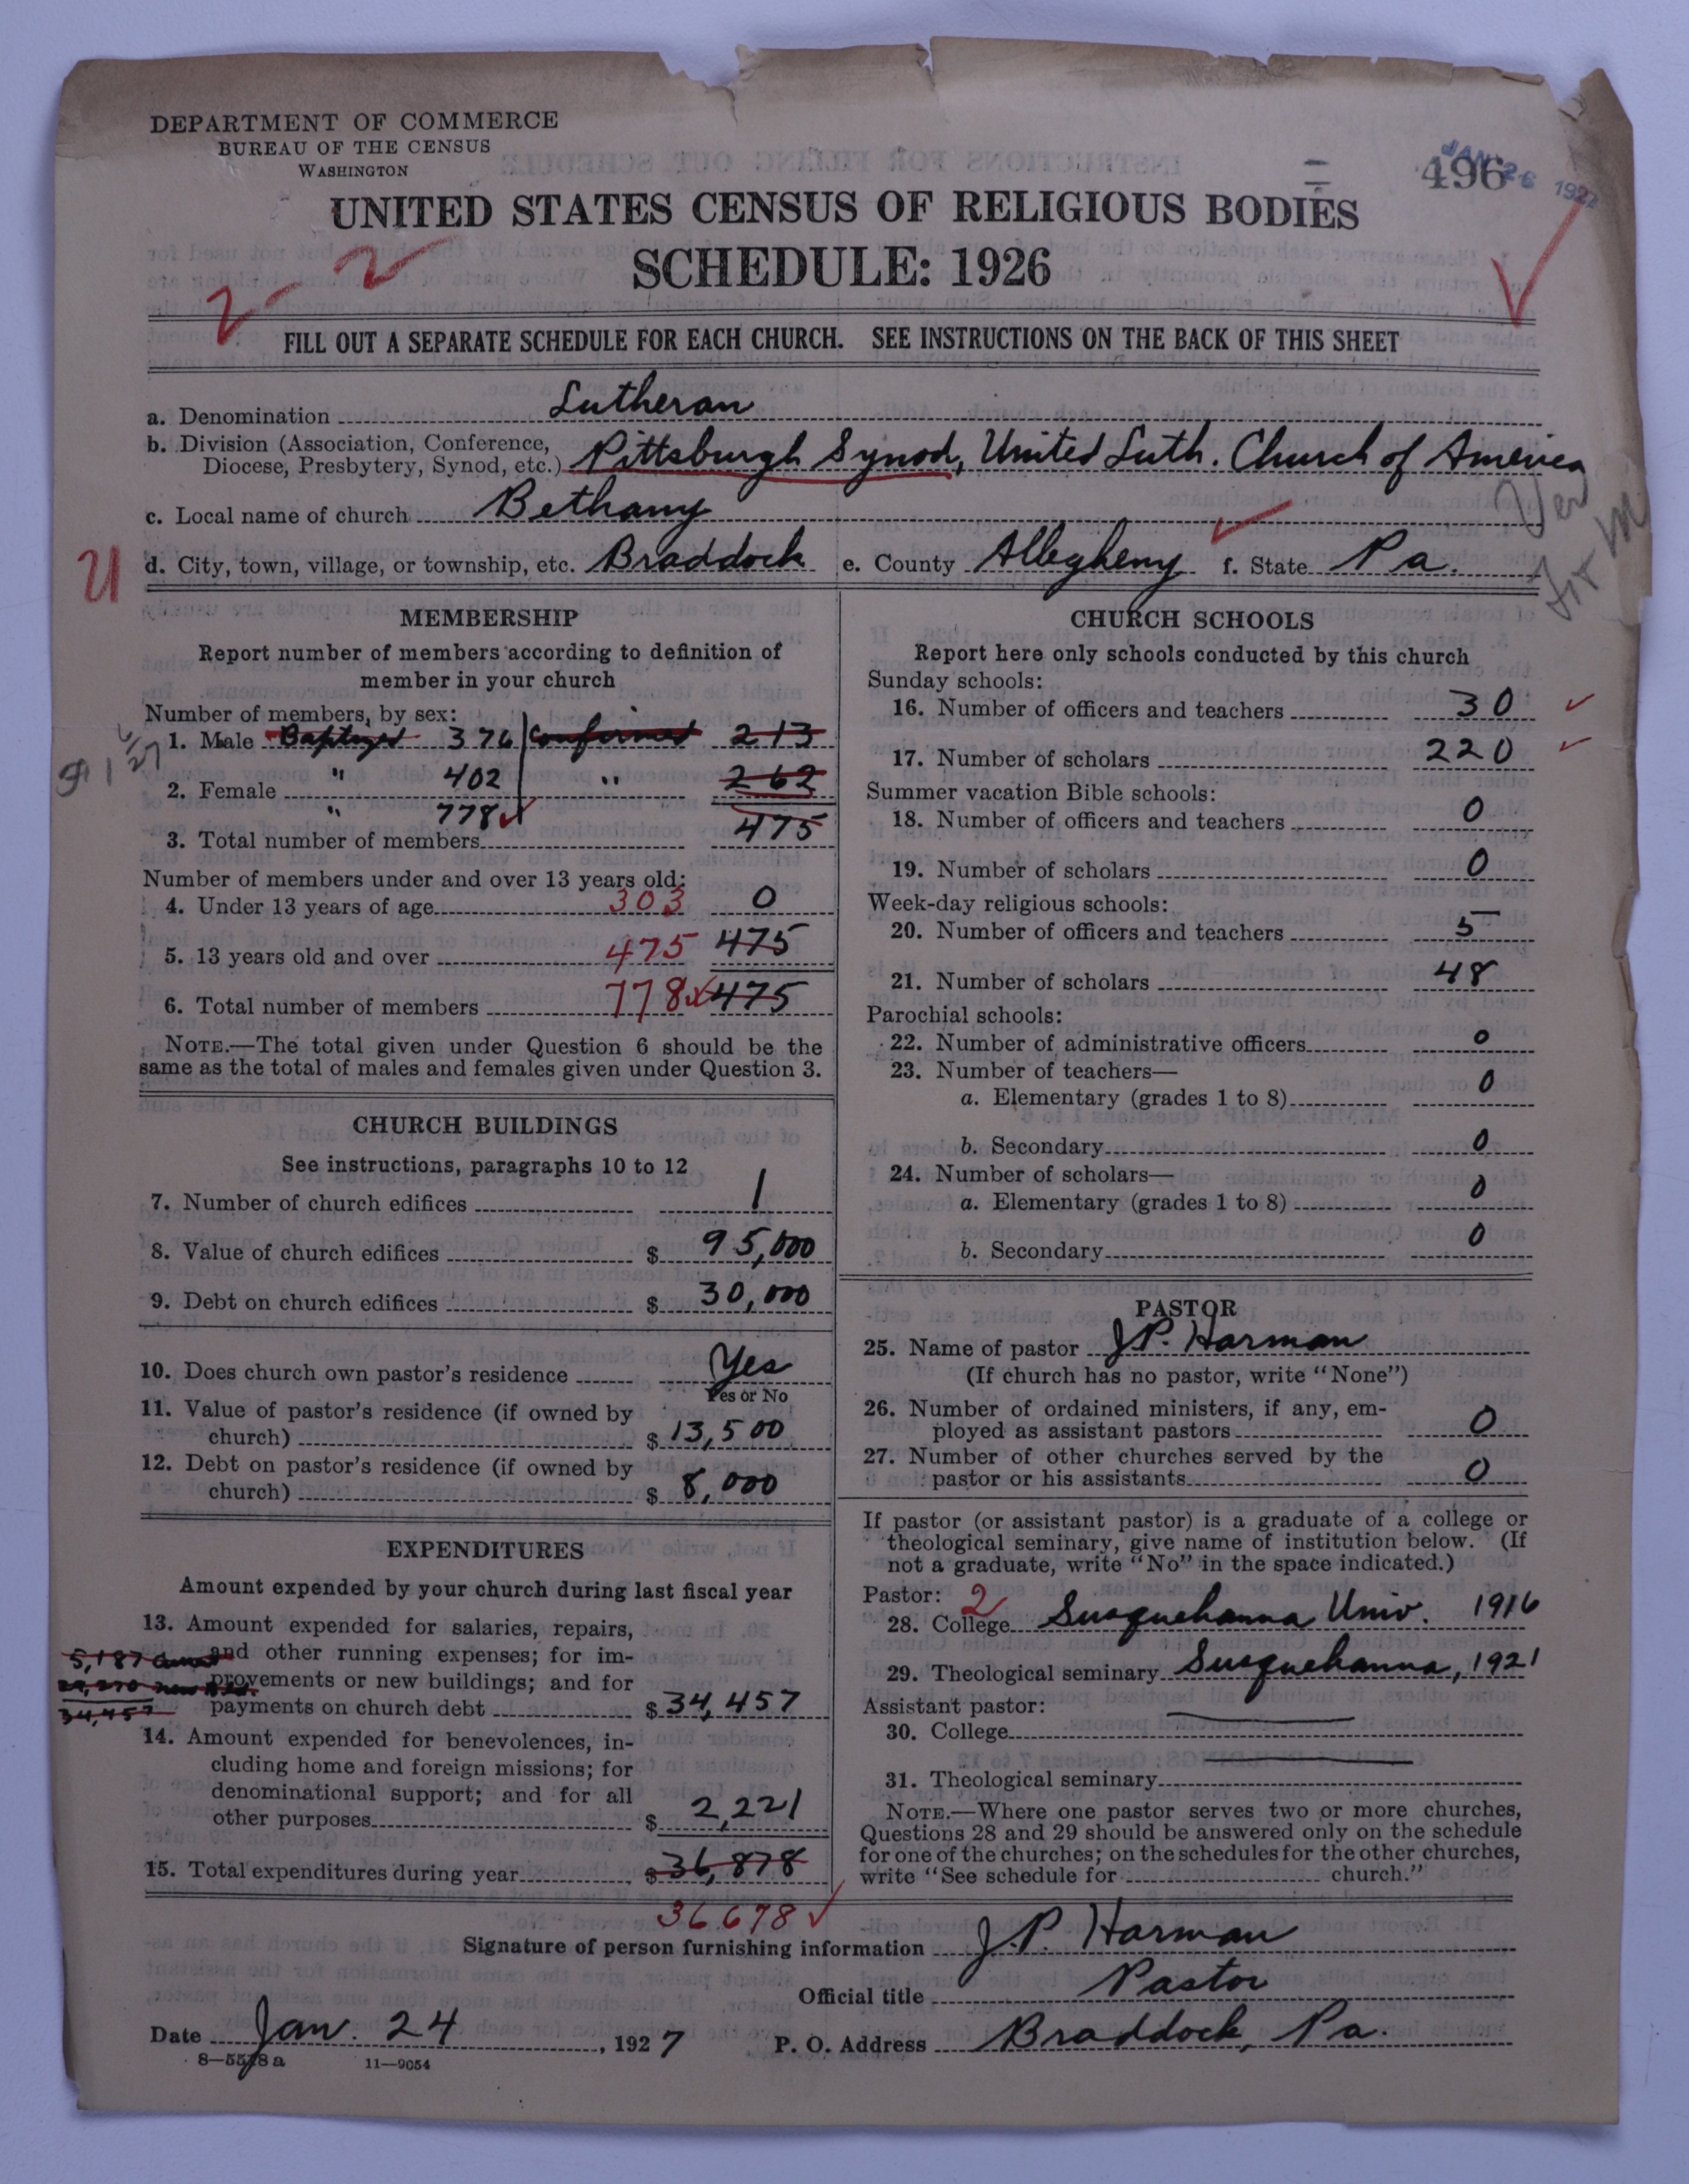 DEPARTMENT OF COMMERCE
BUREAU OF THE CENSUS
WASHINGTON
496
JAN 26 1927
UNITED STATES CENSUS OF RELIGIOUS BODIES
SCHEDULE: 1926
2 2
FILL OUT A SEPARATE SCHEDULE FOR EACH CHURCH. SEE INSTRUCTIONS ON THE BACK OF THIS SHEET
a. Denomination Lutheran
b. Division (Association, Conference,
Diocese, Presbytery, Synod, etc.) Pittsburgh Synod, United Luth. Church of America
c. Local name of church Bethany
d. City, town, village, or township, etc. Braddock e. County Allegheny f. State Pa.
MEMBERSHIP
Report number of members according to definition of
member in your church
Number of members, by sex:
1. Male Baptized 376 Confirmed 213
2. Female " 402 " 262
3. Total number of members " 778 475
Number of members under and over 13 years old:
4. Under 13 years of age 303 0
5. 13 years old and over 475 475
6. Total number of members 778 475
NOTE.—The total given under Question 6 should be the
same as the total of males and females given under Question 3.
CHURCH BUILDINGS
See instructions, paragraphs 10 to 12
7. Number of church edifices 1
8. Value of church edifices $ 95,000
9. Debt on church edifices $ 30,000
10. Does church own pastor's residence Yes
Yes or No
11. Value of pastor's residence (if owned by
church) $ 13,500
12. Debt on pastor's residence (if owned by
church) $ 8,000
EXPENDITURES
Amount expended by your church during last fiscal year
13. Amount expended for salaries, repairs,
5,187 and other running expenses; for im-
provements or new buildings; and for
34,457 payments on church debt $ 34,457
14. Amount expended for benevolences, in-
cluding home and foreign missions; for
denominational support; and for all
other purposes $ 2,221
15. Total expenditures during year $ 36,878
36678
CHURCH SCHOOLS
Report here only schools conducted by this church
Sunday schools:
16. Number of officers and teachers 30
17. Number of scholars 220
Summer vacation Bible schools:
18. Number of officers and teachers 0
19. Number of scholars 0
Week-day religious schools:
20. Number of officers and teachers 5
21. Number of scholars 48
Parochial schools:
22. Number of administrative officers 0
23. Number of teachers—
a. Elementary (grades 1 to 8) 0
b. Secondary 0
24. Number of scholars—
a. Elementary (grades 1 to 8) 0
b. Secondary 0
PASTOR
25. Name of pastor J.P. Harman
(If church has no pastor, write "None")
26. Number of ordained ministers, if any, em-
ployed as assistant pastors 0
27. Number of other churches served by the
pastor or his assistants 0
If pastor (or assistant pastor) is a graduate of a college or
theological seminary, give name of institution below. (If
not a graduate, write "No" in the space indicated.)
Pastor: 2
28. College Susquehanna Univ. 1916
29. Theological seminary Susquehanna, 1921
Assistant pastor:
30. College
31. Theological seminary
NOTE.—Where one pastor serves two or more churches,
Questions 28 and 29 should be answered only on the schedule
for one of the churches; on the schedules for the other churches,
write "See schedule for church."
Signature of person furnishing information J.P. Harman
Official title Pastor
Date Jan. 24, 1927 P. O. Address Braddock, Pa.
8—5578a 11—9054